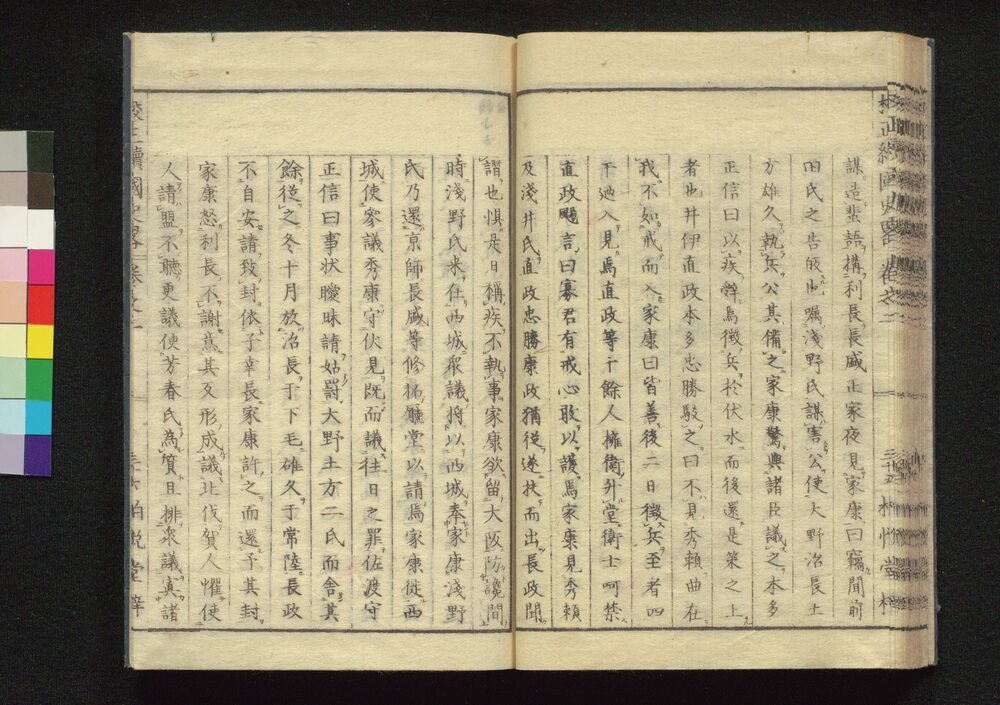 謀造蜚語搆利長長盛正家夜見家康曰竊聞前
田氏之告的也囑淺野氏謀害公使大野治長土
方雄久執兵公其備之家康驚與諸臣議之本多
正信曰以疾辭焉徵兵於伏水而後還是策之上
者也井伊直政本多忠勝駁之曰不見秀賴曲在
我不如戒而入家康曰皆善後二日徵兵至者四
千廼入見焉直政等十餘人擁衛升堂衛士呵禁
直政颺言曰寡君有戒心敢以護焉家康見秀賴
及淺井氏直政忠勝康政猶從遂扶而出長政聞
譖也惧是日稱疾不執事家康欲留大阪防讒間
時淺野氏來在西城衆議將以西城奉家康淺野
氏乃還京師長盛等修拓聽堂以請焉家康徙西
城使參議秀康守伏見既而議往日之罪佐渡守
正信曰事状曖昧請姑罰大野土方二氏而舍其
餘從之冬十月放治長于下毛雄久于常陸長政
不自安請致封依子幸長家康許之而還予其封
家康怒利長不謝意其叉形成議北伐賀人懼使
人請盟不聽更議使芳春氏為質且排衆議寘諸